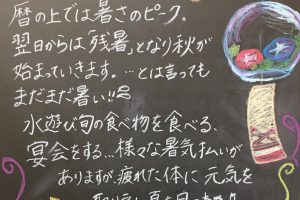 暦の上では暑さのピーク。
翌日からは「残暑」となり秋が
始まっていきます。…とは言っても
まだまだ暑い!!
水遊び旬の食べ物を食べる、
宴会をする…様々な暑気払いが
ありますが、疲れた体に元気を